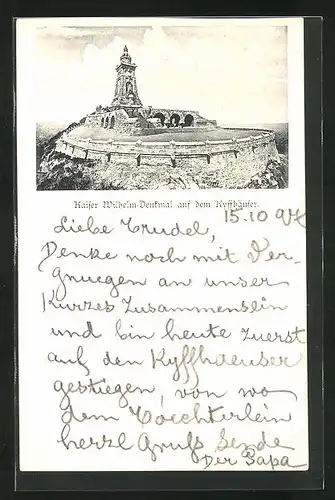 Kaiser Wilhelm-Denkmal auf dem Kyffhäuser.
15.10 97
Liebe Trudel,
Denke noch mit Ver-
gnuegen an unser
Kurzes Zusammensein
und bin heute zuerst
auf den Kyffhaeuser
gestiegen, von wo
dem Toechterlein
herzl Gruß sende
Der Papa